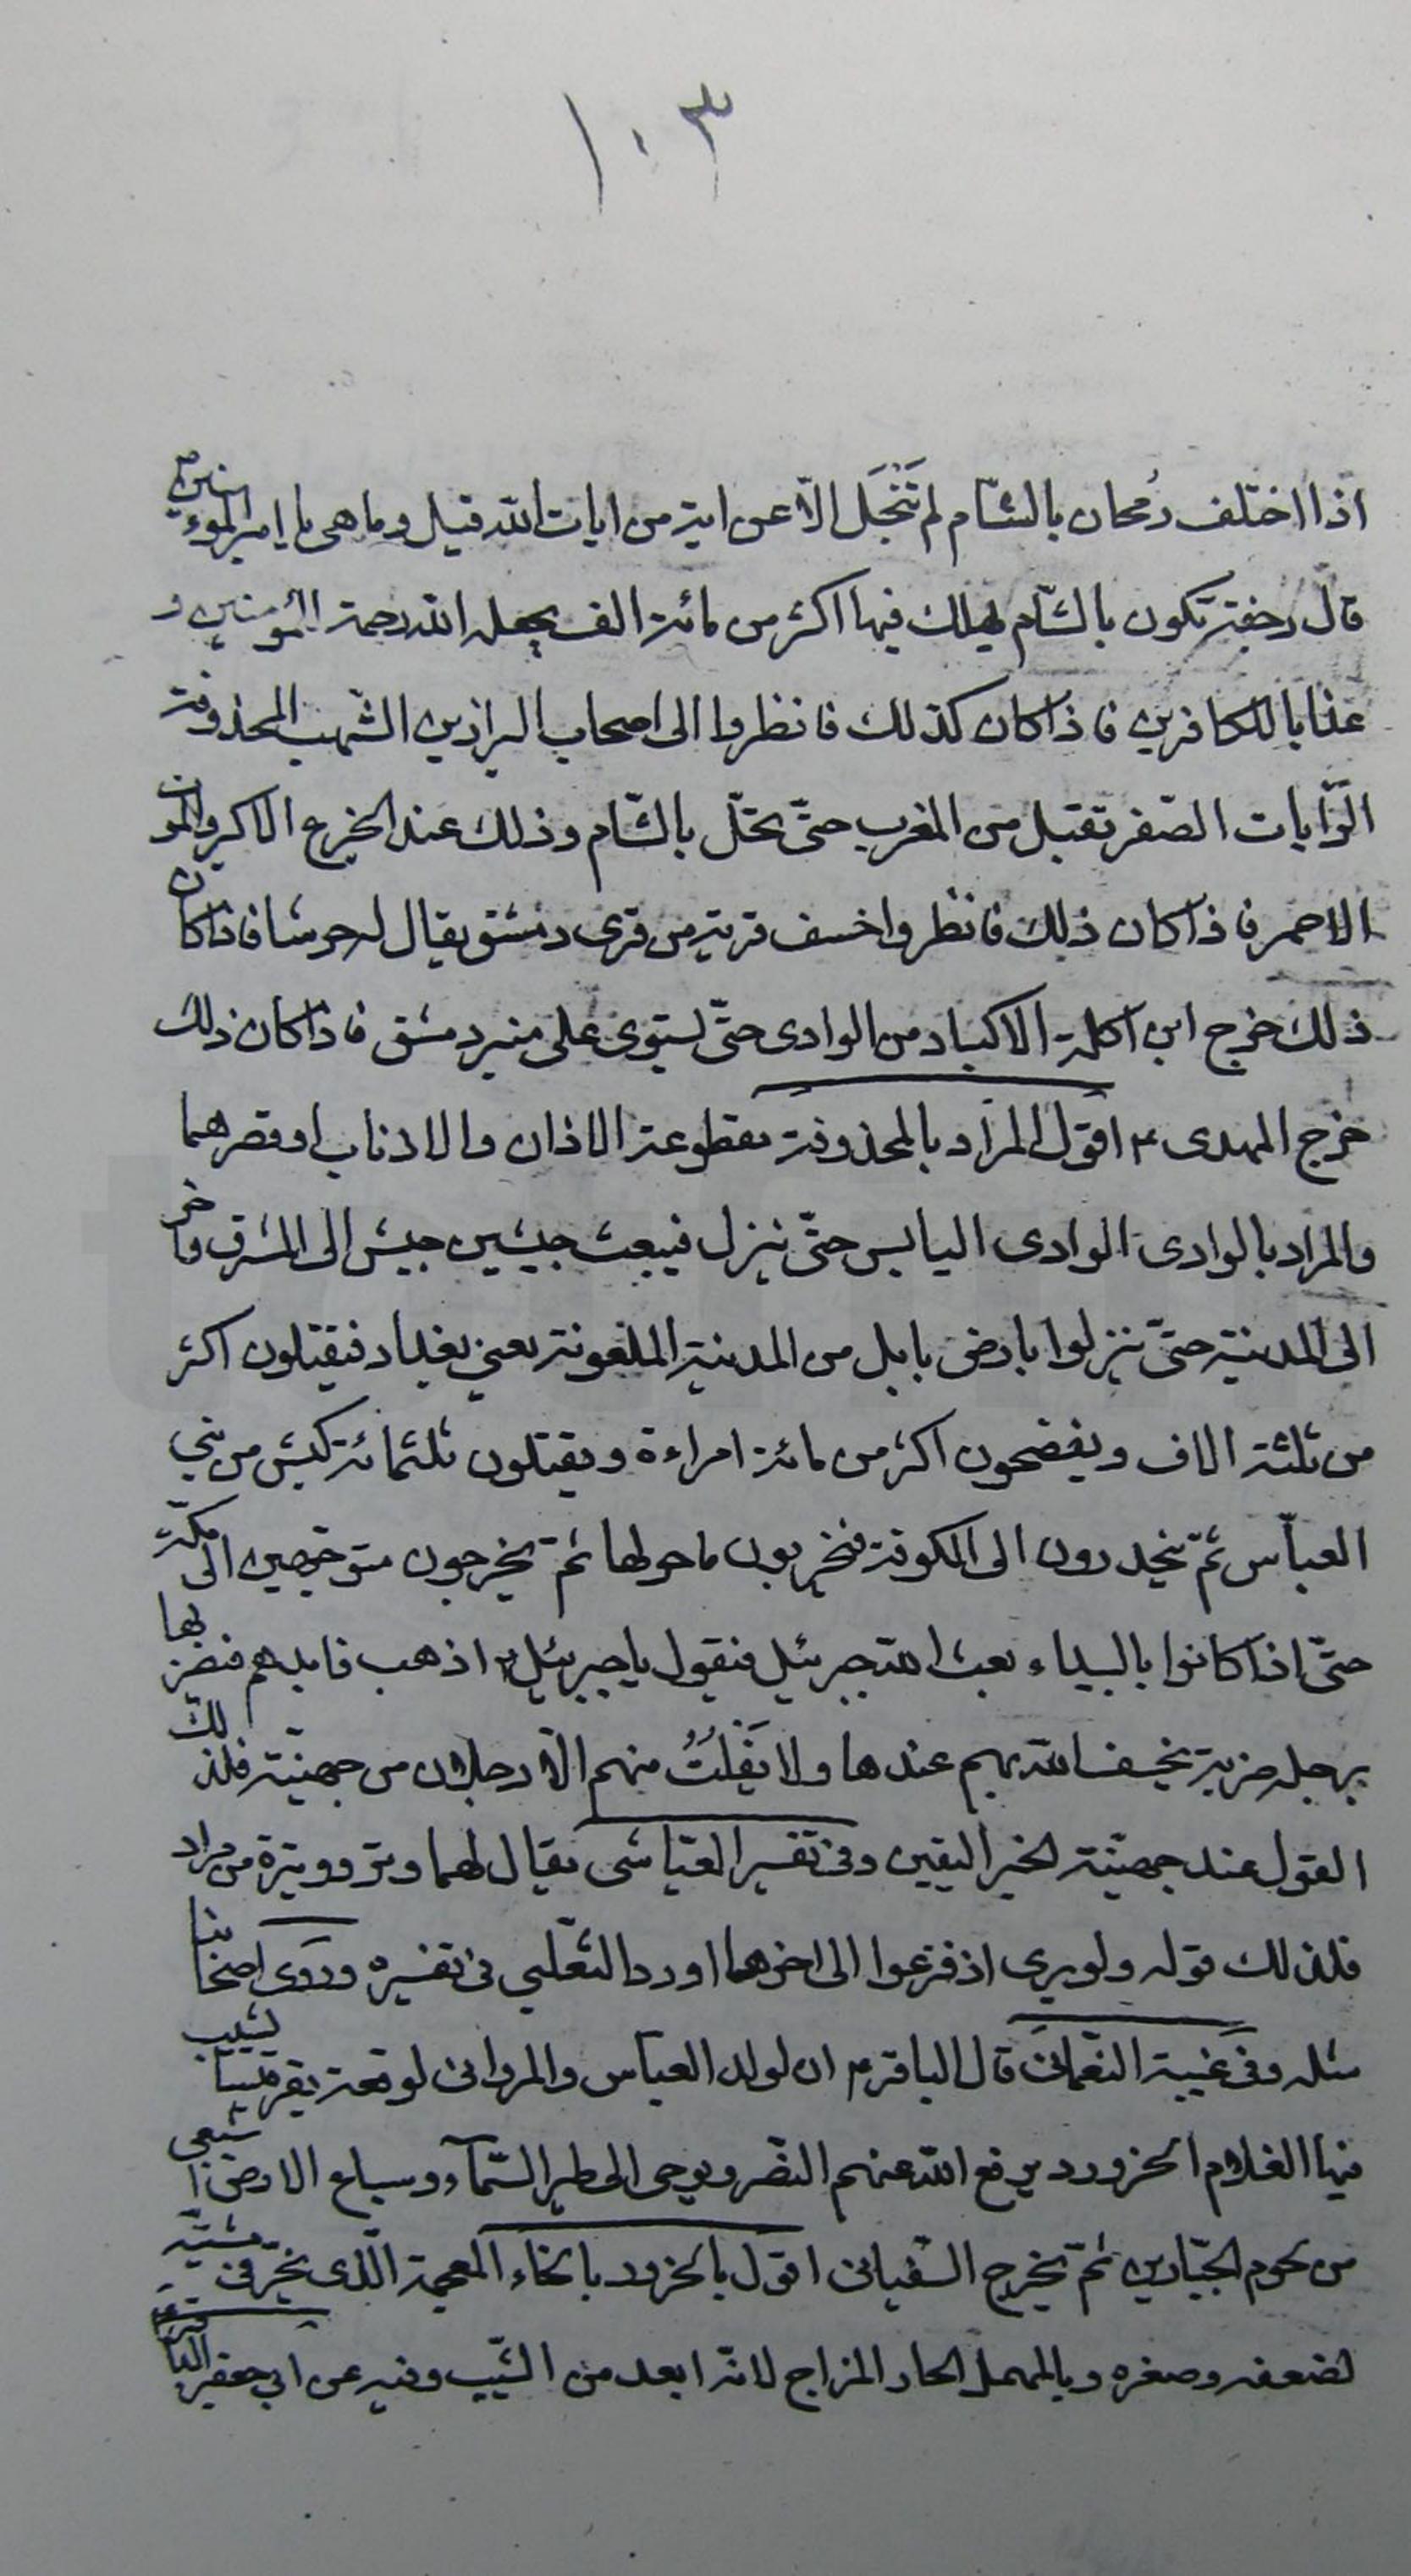 ١٠٣
اذا اختلف رُمحان بالشّام لم تَنْجَل الّا عن اية من ايات الله قيل وما هى يا امير المؤمنين ع
قال رجفة تكون بالشّام يهلك فيها اكثر من مائة الف يجعله الله رحمة للمؤمنين و
عذابا للكافرين فاذا كان كذلك فانظروا الى اصحاب البراذين الشّهب المحذوفة
الرّايات الصّفر تقبل من المغرب حتّى تحلّ بالشّام وذلك عند الجزع الاكبر والموت
الاحمر فاذا كان ذلك فانظروا خسف قرية من قرى دمشق يقال له حرشا فاذا كان
ذلك خرج ابن اكلة الاكباد من الوادى حتّى يستوى على منبر دمشق فاذا كان ذلك
خرج المهدى ع اقول المراد بالمحذوفة مقطوعة الاذان والاذناب او قصرهما
والمراد بالوادى الوادى اليابس حتّى ينزل فيبعث جيشين جيش الى المشرق واخر
الى المدينة حتّى ينزلوا بارض بابل من المدينة الملعونة يعنى بغداد فيقتلون اكثر
من ثلثة الاف ويفضحون اكثر من مائة امراءة ويقتلون ثلثمائة كبش من بنى
العبّاس ثمّ ينحدرون الى الكوفة فيخربون ما حولها ثمّ يخرجون متوجّهين الى مكّة
حتّى اذا كانوا بالبيداء بعث الله جبرئيل فيقول يا جبرئيل اذهب فابدهم فيضربها
برجله ضربة يخسف الله بهم عندها ولا يَفْلِتُ منهم الّا رجلان من جهينة فلذلك
القول عند جهينة الخبر اليقين وفى تفسير العيّاشى يقال لهما وتر ووتيرة من مراد
فلذلك قوله ولو ترى اذ فزعوا الى اخرهما اورد الثّعلبى فى تفسيره وروى اصحابنا
مثله وفى غيبة النّعمانى قال الباقر ع ان لولد العبّاس والمروانى لوقعة بقرقيسا يشيب
فيها الغلام الحزور يرفع الله عنهم النّصر ويوحى الى طير السّماء وسباع الارض اشبعى
من لحوم الجبّارين ثمّ يخرج السّفيانى اقول بالخزور بالخاء المعجمة الّذى يتخرّق فى مشيته
لضعفه وصغره وبالمهمل الحار المزاج لانّه ابعد من الشّيب وفيه عن ابى جعفر الباقر ع